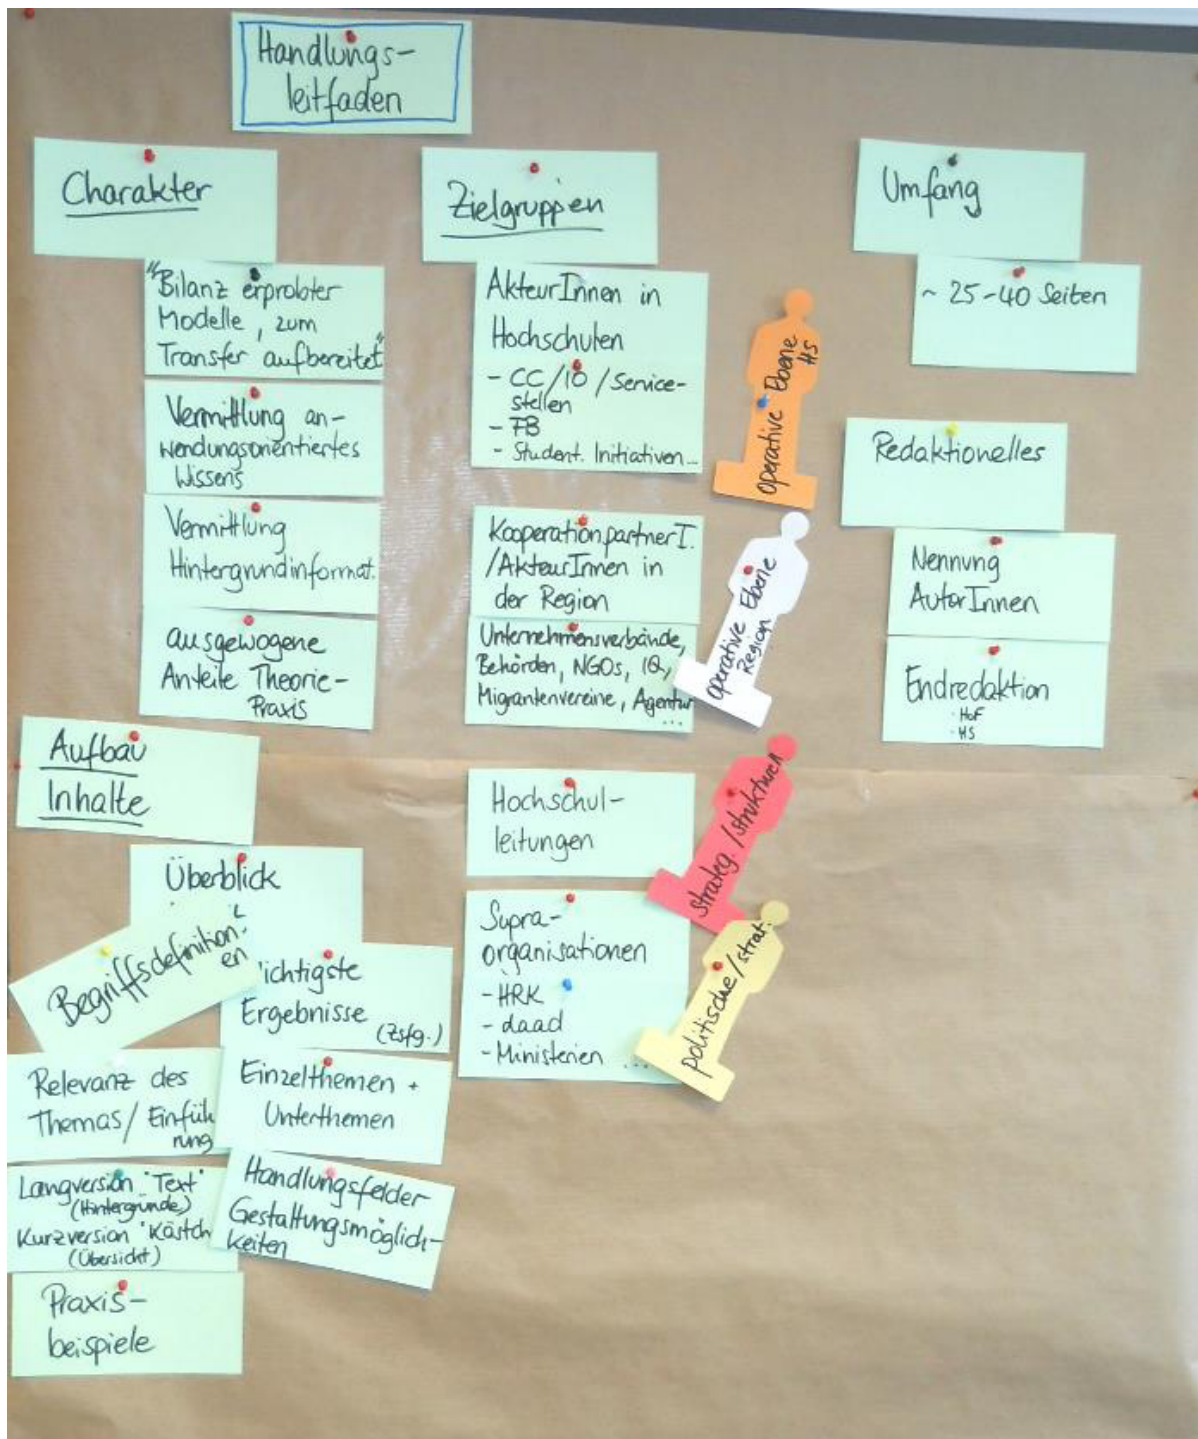 Handlungs-
leitfaden
Charakter
"Bilanz erprobter
Modelle, zum
Transfer aufbereitet"
Vermittlung an-
wendungsorientiertes
Wissens
Vermittlung
Hintergrundinformat.
ausgewogene
Anteile Theorie-
Praxis
Aufbau
Inhalte
Überblick
Begriffsdefinition-
en
ichtigste
Ergebnisse
(Zsfg.)
Relevanz des
Themas / Einfüh
rung
Einzelthemen +
Unterthemen
Langversion "Text"
(Hintergründe)
Kurzversion "Kästch
(Übersicht)
Handlungsfelder
Gestaltungsmöglich-
keiten
Praxis-
beispiele
Zielgruppen
AkteurInnen in
Hochschulen
- CC / IO / Service-
stellen
- FB
- Student. Initiativen...
operative Ebene
HS
KooperationpartnerI.
/AkteurInnen in
der Region
Unternehmensverbände,
Behörden, NGOs, IQ,
Migrantenvereine, Agentur
...
operative Ebene
Region
Hochschul-
leitungen
strateg. / strukturell
Supra-
organisationen
- HRK
- daad
- Ministerien ...
politische / strat.
Umfang
~ 25-40 Seiten
Redaktionelles
Nennung
AutorInnen
Endredaktion
· HoF
· HS